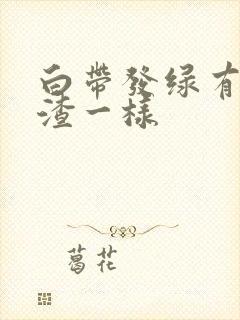 白帶發绿有
渣一樣
葛花